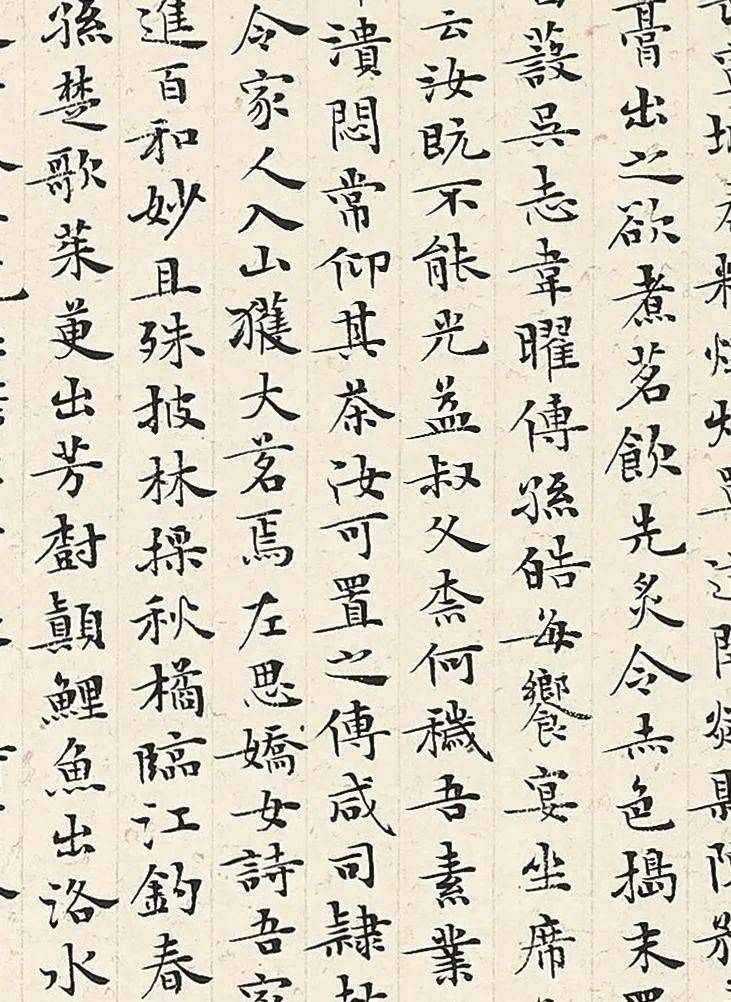 膏出之欲煮茗飲先炙令赤色搗末置
蔎吳志韋曜傳孫皓每饗宴坐席
云汝既不能光益叔父柰何穢吾素業
潰悶常仰其茶汝可置之傳咸司隸
令家人入山獲大茗焉左思嬌女詩吾家
進百和妙且殊披林採秋橘臨江釣春
孫楚歌茱萸出芳樹顛鯉魚出洛水